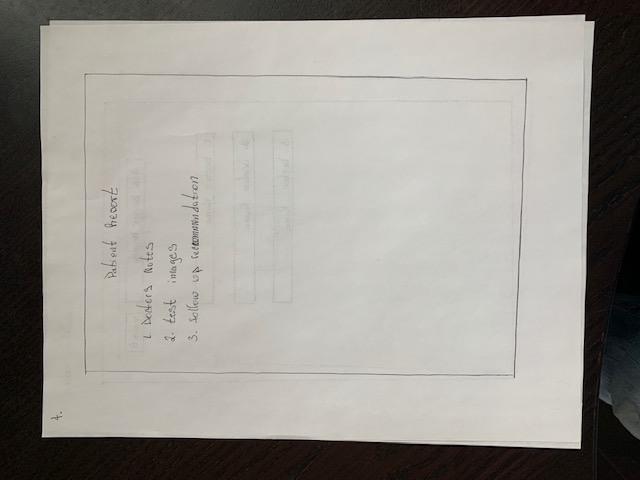 4.
Patient Report
1. Doctors Notes
2. test images
3. follow up recommendation